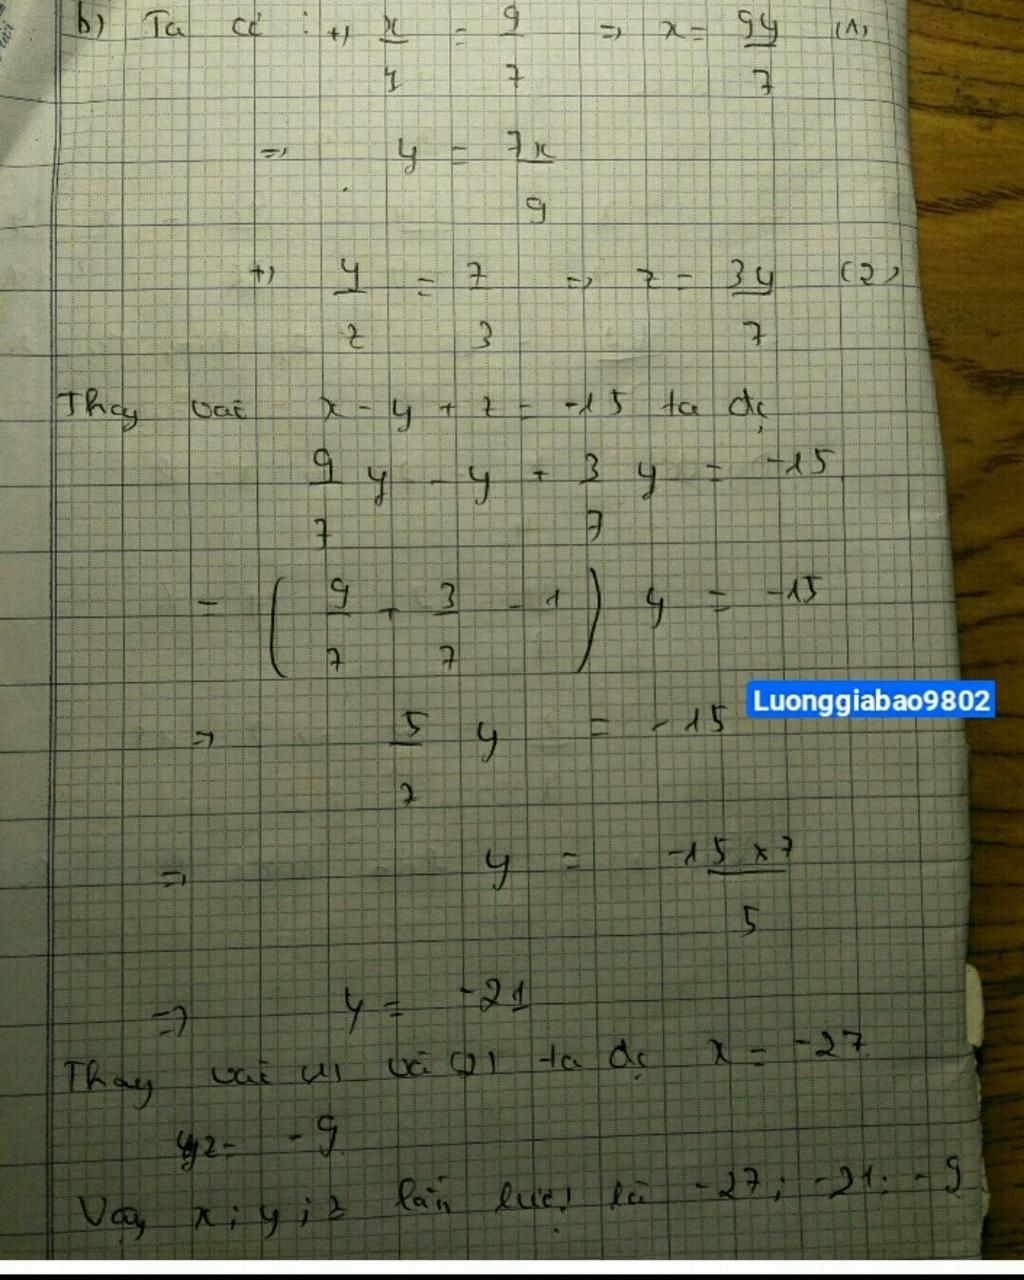 b) Ta có : +) x/y = 9/7 => x = 9y/7 (1)
=> y = 7x/9
+) y/z = 7/3 => z = 3y/7 (2)
Thay vào x - y + z = -15 ta đc
9/7 y - y + 3/7 y = -15
= ( 9/7 + 3/7 - 1 ) y = -15
Luonggiabao9802
=> 5/7 y = -15
=> y = -15 x 7 / 5
=> y = -21
Thay vào (1) và (2) ta đc x = -27
z = -9
Vậy x ; y ; z lần lượt là -27 ; -21 ; -9